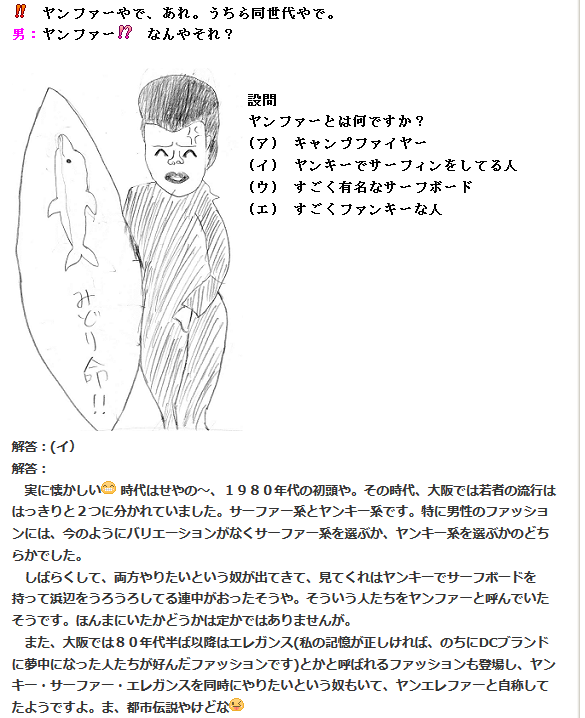 !! ヤンファーやで、あれ。うちら同世代やで。
男：ヤンファー!? なんやそれ？
設問
ヤンファーとは何ですか？
(ア) キャンプファイヤー
(イ) ヤンキーでサーフィンをしてる人
(ウ) すごく有名なサーフボード
(エ) すごくファンキーな人
みどり命!!
解答：(イ)
解答：
　実に懐かしい😁 時代はせやの～、１９８０年代の初頭や。その時代、大阪では若者の流行は
はっきりと２つに分かれていました。サーファー系とヤンキー系です。特に男性のファッショ
ンには、今のようにバリエーションがなくサーファー系を選ぶか、ヤンキー系を選ぶかのどち
らかでした。
　しばらくして、両方やりたいという奴が出てきて、見てくれはヤンキーでサーフボードを
持って浜辺をうろうろしてる連中がおったそうや。そういう人たちをヤンファーと呼んでいた
そうです。ほんまにいたかどうかは定かではありませんが。
　また、大阪では８０年代半ば以降はエレガンス(私の記憶が正しければ、のちにDCブランド
に夢中になった人たちが好んだファッションです)とかと呼ばれるファッションも登場し、ヤン
キー・サーファー・エレガンスを同時にやりたいという奴もいて、ヤンエレファーと自称して
たようですよ。ま、都市伝説やけどな😆